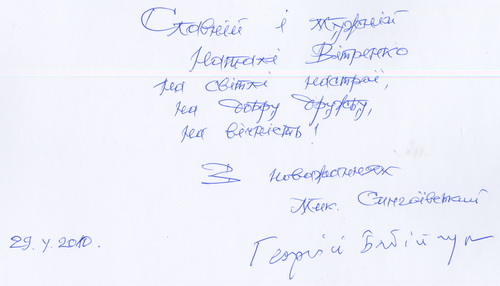 Славній і мужній
Наталі Вітренко
на світлі настрої,
на добру дружбу,
на вічність!
З повагою
Мик. Сингаївський
29. V. 2010.
Георгій